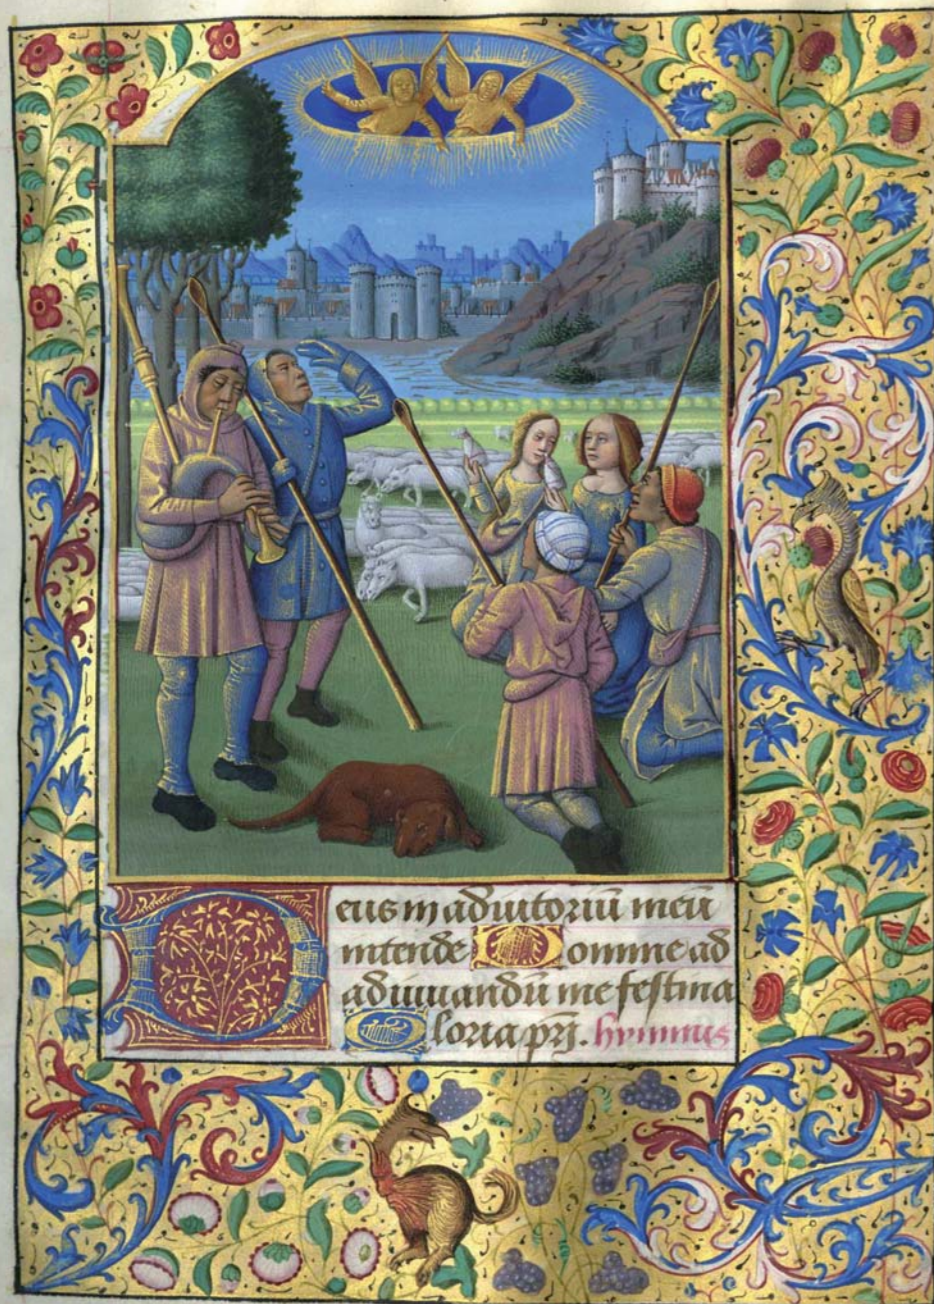 Deus in adiutoriū meū
intende Domine ad
adiuuandū me festina
Gloria prj. hymnus